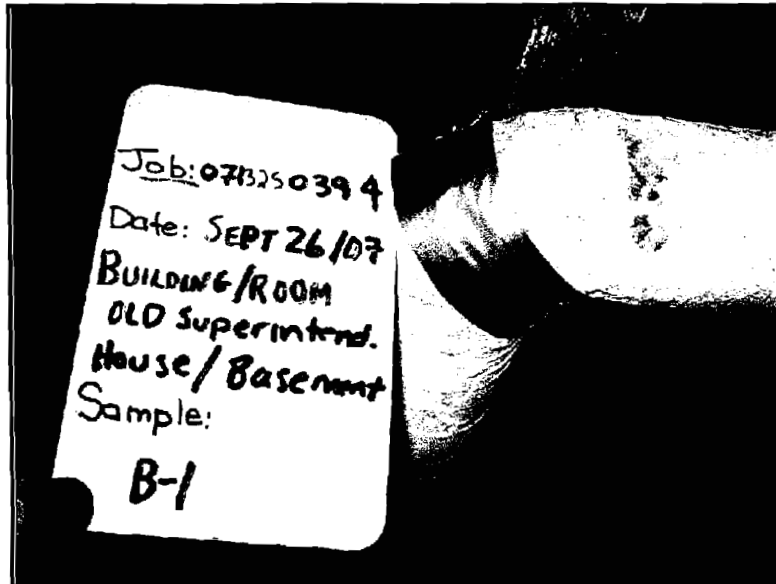 Job: 0713250394
Date: SEPT 26/07
BUILDING/ROOM
OLD Superintend.
House/Basement
Sample:
B-1